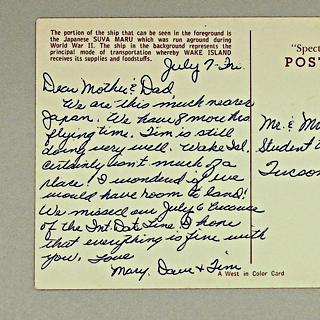 The portion of the ship that can be seen in the foreground is
the Japanese SUVA MARU which was run aground during
World War II. The ship in the background represents the
principal mode of transportation whereby WAKE ISLAND
receives its supplies and foodstuffs.
July 7-Fri.
Dear Mother & Dad,
We are this much nearer
Japan. We have 8 more hrs
flying time. Tim is still
doing very well. Wake Isl.
certainly isn't much of a
place! I wondered if we
would have room to land!
We missed our July 6 because
of the Int. Date Line. I hope
that everything is fine with
you. Love
Mary, Dave & Tim
A West in Color Card
"Spect
POST
Mr. & M
Student
Tucson